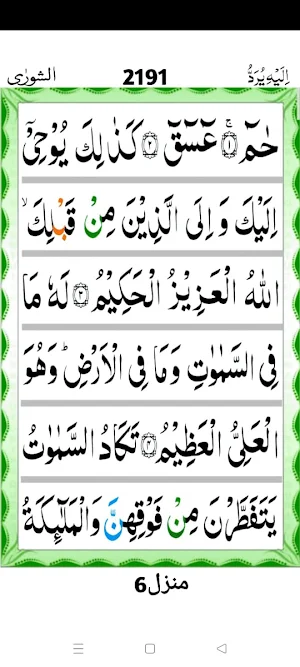 اِلَيْهِ يُرَدُّ 2191 الشورٰى
حٰمٓ ۚ﴿۱﴾ عٓسٓقٓ ﴿۲﴾ كَذٰلِكَ يُوْحِيْٓ
اِلَيْكَ وَ اِلَى الَّذِيْنَ مِنْ قَبْلِكَ ۙ
اللّٰهُ الْعَزِيْزُ الْحَكِيْمُ ﴿۳﴾ لَهٗ مَا
فِى السَّمٰوٰتِ وَمَا فِى الْاَرْضِ ؕ وَهُوَ
الْعَلِىُّ الْعَظِيْمُ ﴿۴﴾ تَكَادُ السَّمٰوٰتُ
يَتَفَطَّرْنَ مِنْ فَوْقِهِنَّ وَالْمَلٰٓئِكَةُ
منزل6